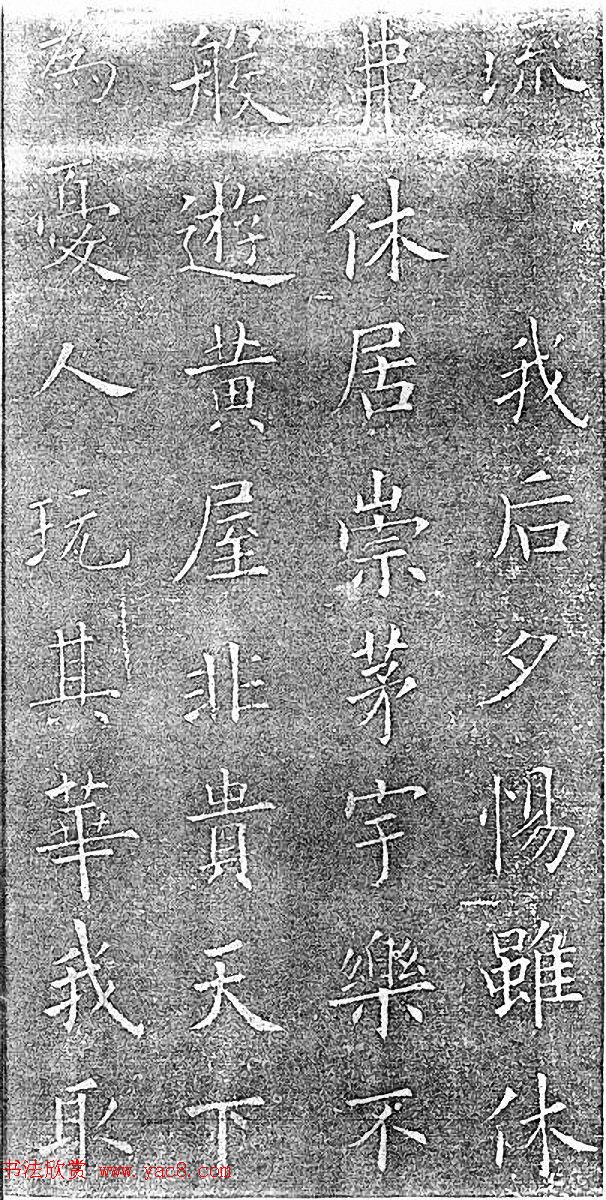 流 我后夕惕雖休
弗休居崇茅宇樂不
般遊黄屋非貴天下
為憂人玩其華我取
书法欣赏 www.yac8.com